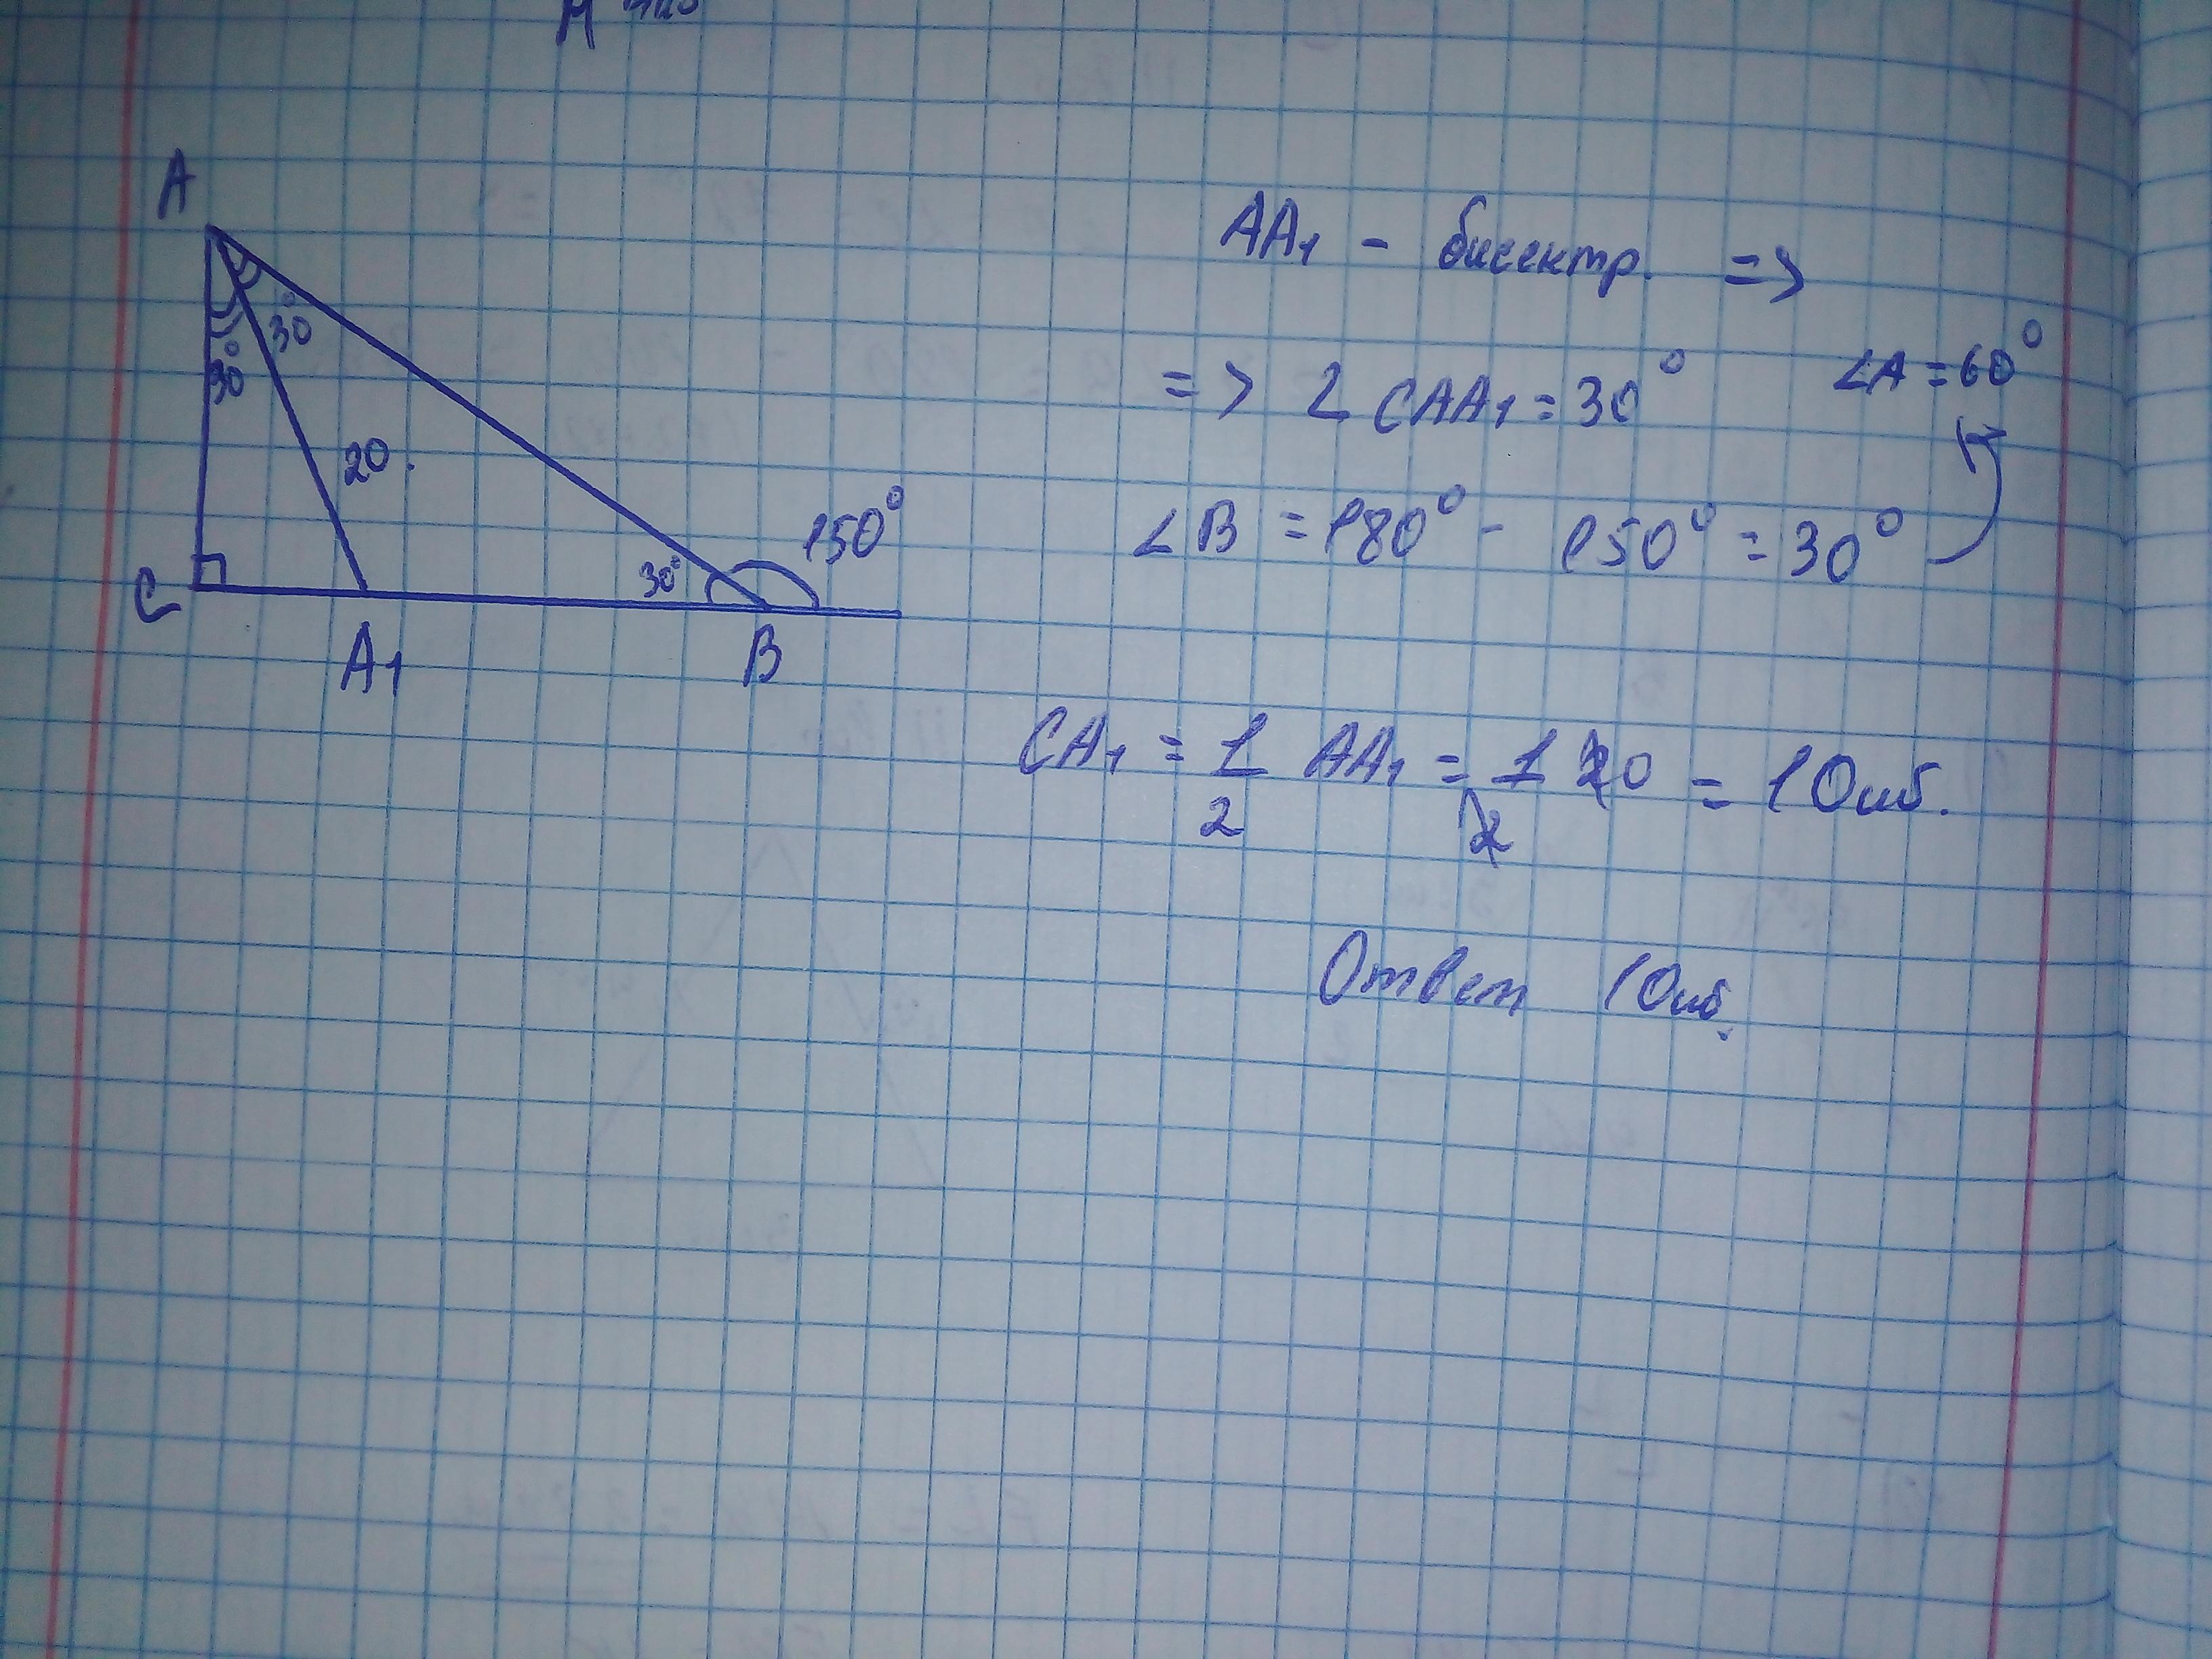 A
30°
30°
20.
150°
30°
C
A₁
B
AA₁ - бисектр. =>
=> ∠CAA₁ = 30°
∠A = 60°
∠B = 180° - 150° = 30°
CA₁ = 1/2 AA₁ = 1/2 20 = 10 см.
Ответ 10 см.